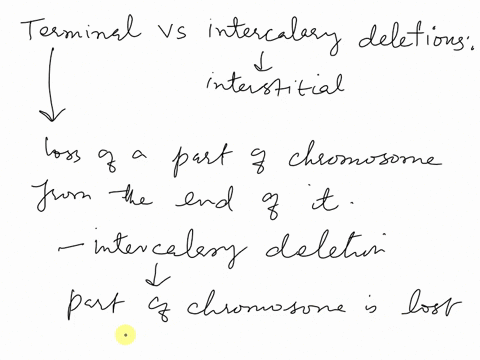 Terminal vs intercalery deletions:.
↓ ↓
interstitial
loss of a part of chromosome
from the end of it.
– intercalery deletion
↓
part of chromosome is lost